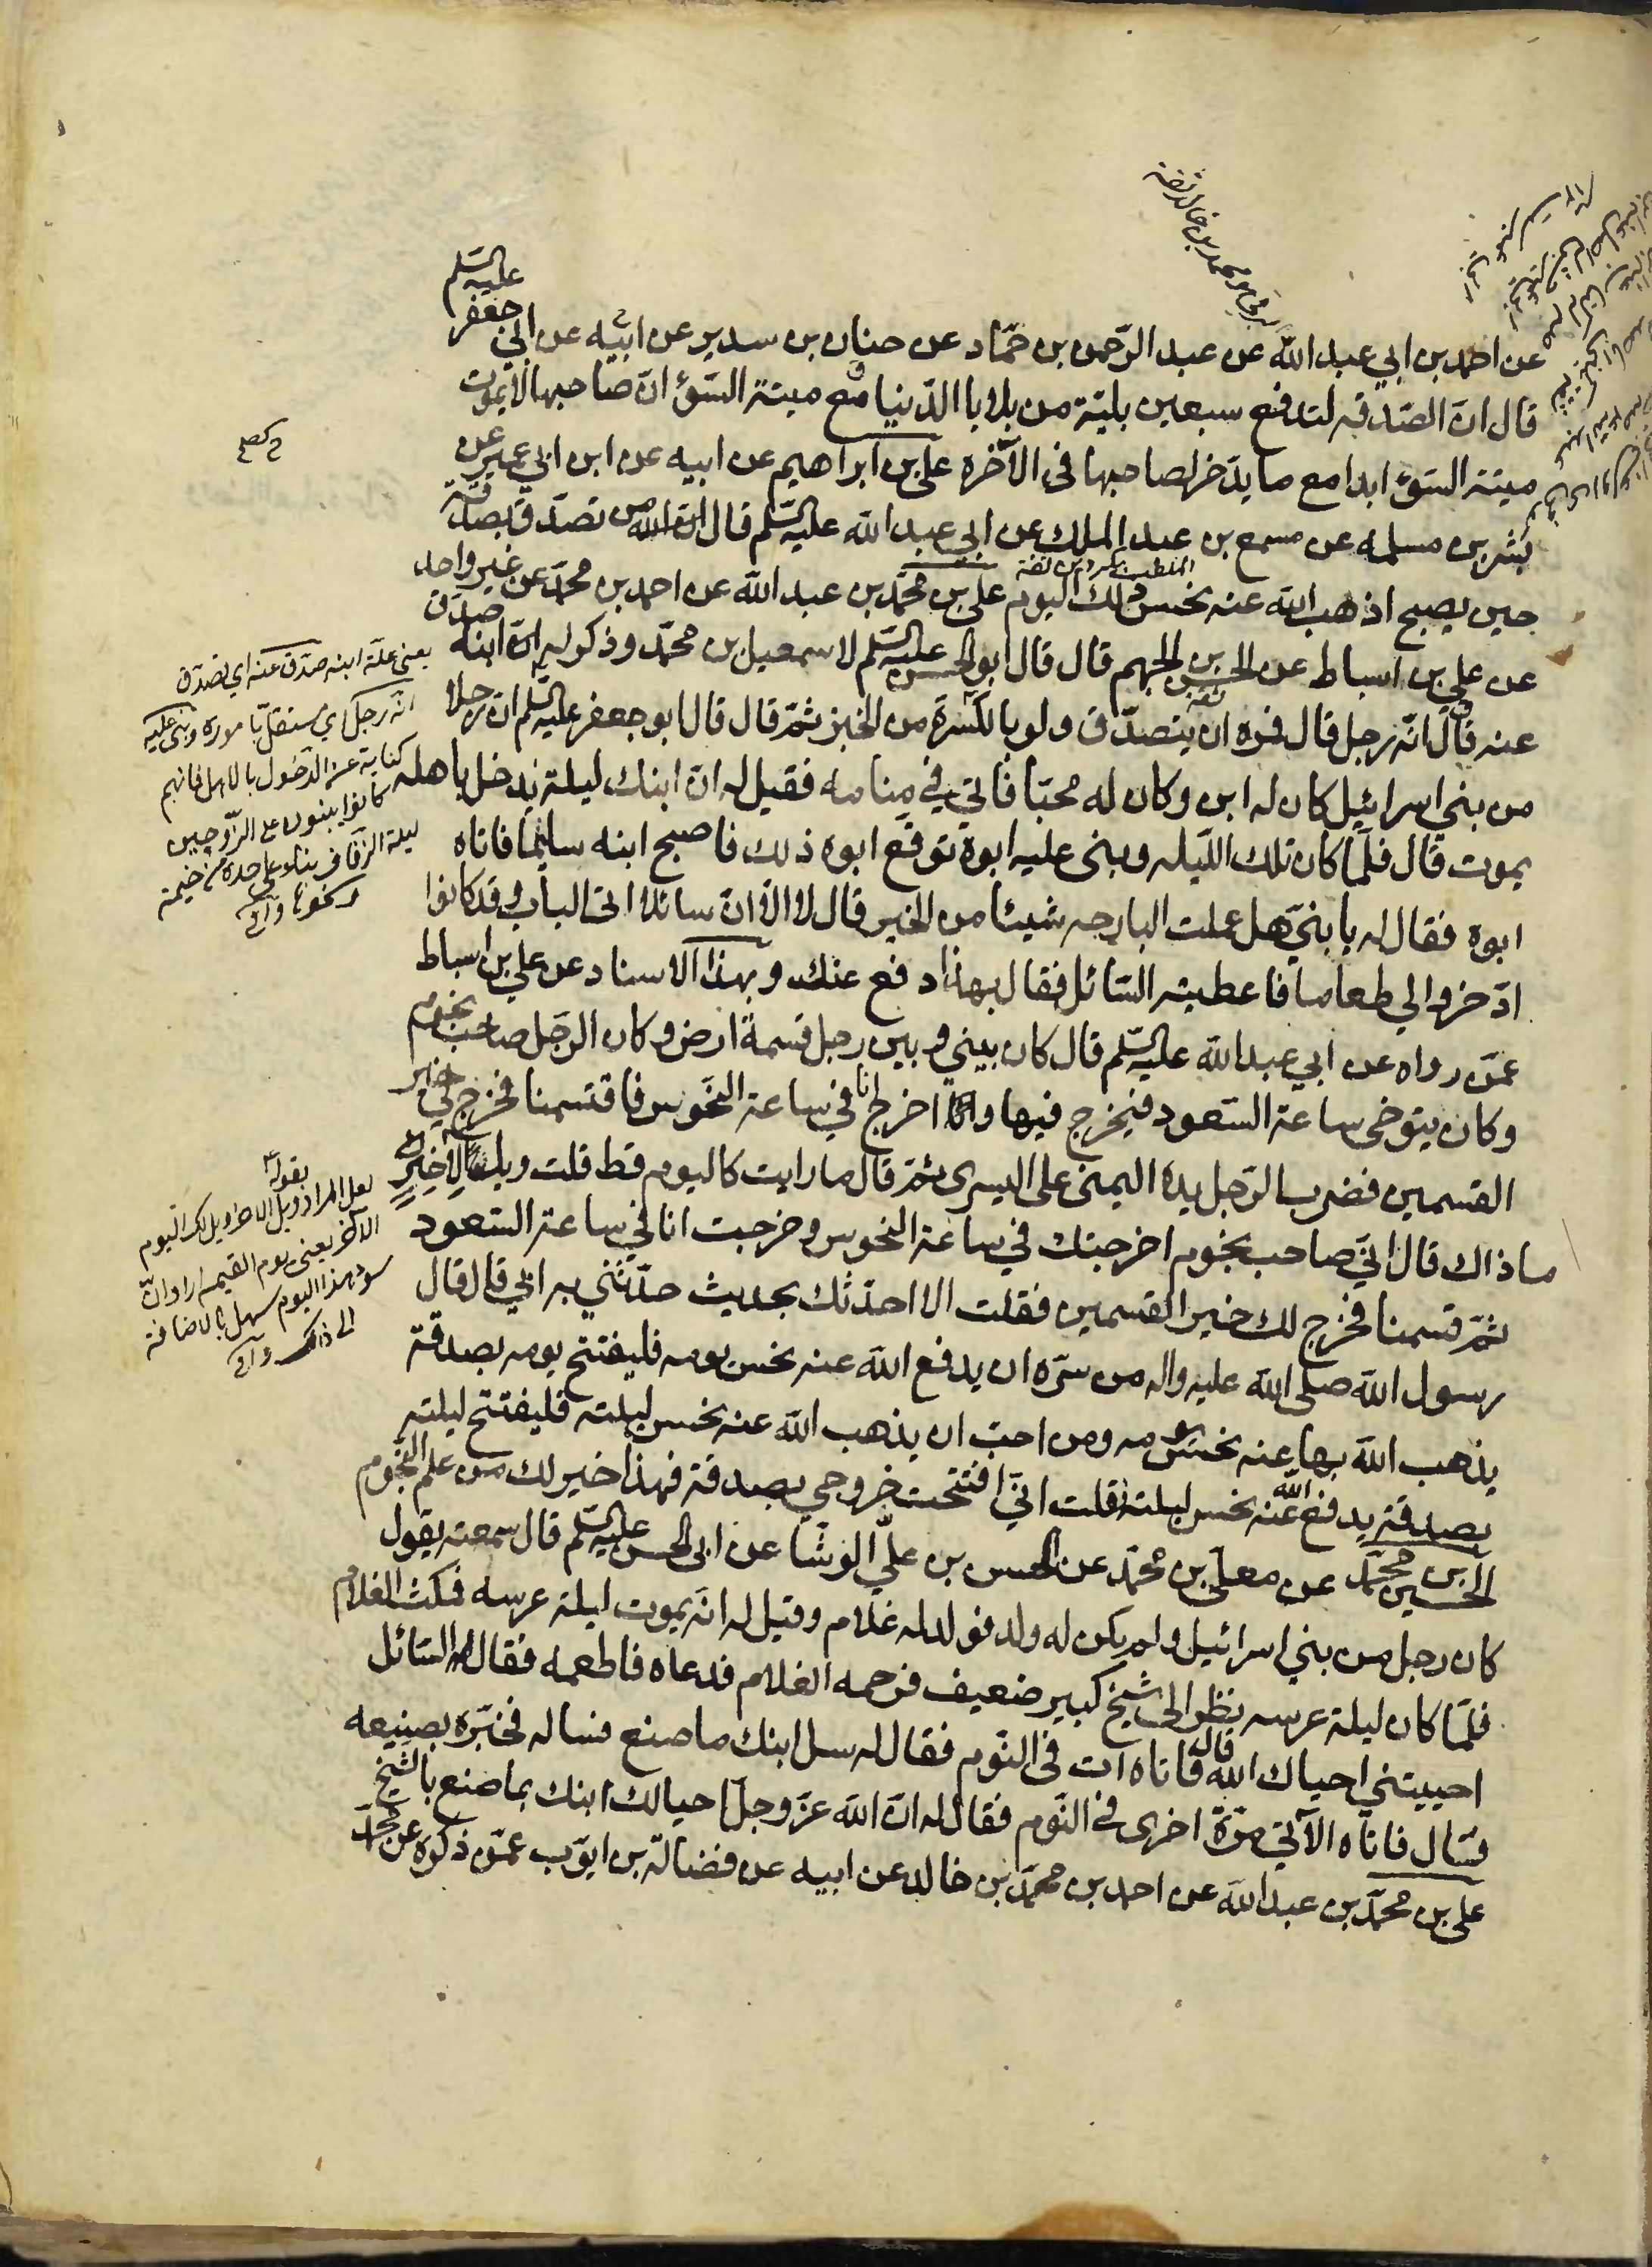 عن احمد بن ابي عبد الله عن عبد الرّحمن بن حمّاد عن حنان بن سدير عن ابيه عن ابي جعفر عليه السّلم
قال انّ الصّدقه لتدفع سبعين بليّة من بلايا الدّنيا مع ميتة السّوء انّ صاحبها لا يموت
ميتة السّوء ابدا مع ما يدّخر لصاحبها في الآخره علي بن ابراهيم عن ابيه عن ابن ابي عمير عن
بشر بن مسلمه عن مسمع بن عبد الملك عن ابي عبد الله عليه السّلم قال من تصدّق بصدقة
حين يصبح اذهب الله عنه نحس ذلك اليوم علي بن محمّد بن عبد الله عن احمد بن محمّد عن غير واحد
عن علي بن اسباط عن الحسن بن الجهم قال قال ابو الحسن عليه السّلم لاسمعيل بن محمّد وذكر له انّ ابنه صدّق
عنه قال انّه رجل قال فمره ان يتصدّق ولو بالكسرة من الخبز ثمّ قال قال ابو جعفر عليه السّلم انّ رجلا
من بني اسرائيل كان له ابن وكان له محبّا فاتي في منامه فقيل له انّ ابنك ليلة يدخل باهله
يموت قال فلمّا كان تلك اللّيله وبنى عليه ابوه توقع ابوه ذلك فاصبح ابنه سليما فاتاه
ابوه فقال له يا بنيّ هل عملت البارحه شيئا من الخير قال لا الّا انّ سائلا اتى الباب وقد كانوا
ادّخروا لي طعاما فاعطيته السّائل فقال بهذا دفع عنك وبهذا الاسناد عن علي بن اسباط
عمّن رواه عن ابي عبد الله عليه السّلم قال كان بيني وبين رجل قسمة ارض وكان الرّجل صاحب نجوم
وكان يتوخى ساعة السّعود فيخرج فيها واخرج انا في ساعة النّحوس فاقتسمنا فخرج لي خير
القسمين فضرب الرّجل يده اليمنى على اليسرى ثمّ قال ما رايت كاليوم قط قلت ويل الآخر
ما ذاك قال انّي صاحب نجوم اخرجتك في ساعة النّحوس وخرجت انا في ساعة السّعود
ثمّ قسمنا فخرج لك خير القسمين فقلت الا احدّثك بحديث حدّثني به ابي قال قال
رسول الله صلى الله عليه واله من سرّه ان يدفع الله عنه نحس يومه فليفتتح يومه بصدقة
يذهب الله بها عنه نحس يومه ومن احبّ ان يذهب الله عنه نحس ليلته فليفتتح ليلته
بصدقة يدفع الله عنه نحس ليلته فقلت انّي افتتحت خروجي بصدقة فهذا خير لك من علم النّجوم
الحسين بن محمّد عن معلى بن محمّد عن الحسن بن عليّ الوشّا عن ابي الحسن عليه السّلم قال سمعته يقول
كان رجل من بني اسرائيل ولم يكن له ولد فولد له غلام وقيل له انّه يموت ليلة عرسه فمكث الغلام
فلمّا كان ليلة عرسه نظر الى شيخ كبير ضعيف فرحمه الغلام فدعاه فاطعمه فقال له السّائل
احييتني احياك الله قال فاتاه ات في النّوم فقال له سل ابنك ما صنع فساله فخبّره بصنيعه
قال فاتاه الآتي مرّة اخرى في النّوم فقال له انّ الله عزّ وجلّ احيا لك ابنك بما صنع بالشّيخ
علي بن محمّد بن عبد الله عن احمد بن محمّد بن خالد عن ابيه عن فضالة بن ايّوب عمّن ذكره عن محمّد
يعني علّة ابنه صدّق عنه اي تصدّق
انّه رجل اي مستقلّ باموره وبنى عليه
كناية عن الدّخول بالاهل فانهم
كانوا يبنون على الزّوجين
ليلة الزّفاف بناء على حدة من خيمة
ونحوها
لعل المراد بقوله ويل الآخر ويل لك اليوم
الآخر يعني يوم القيمه اراد انّ
سوء هذا اليوم سهل بالاضافة
الى ذلك